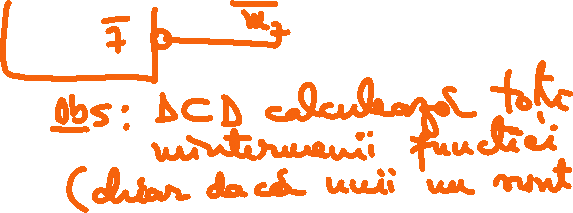 7̅ m̅₇
Obs: DCD calculează toți
mintermenii funcției
(chiar dacă unii nu sunt